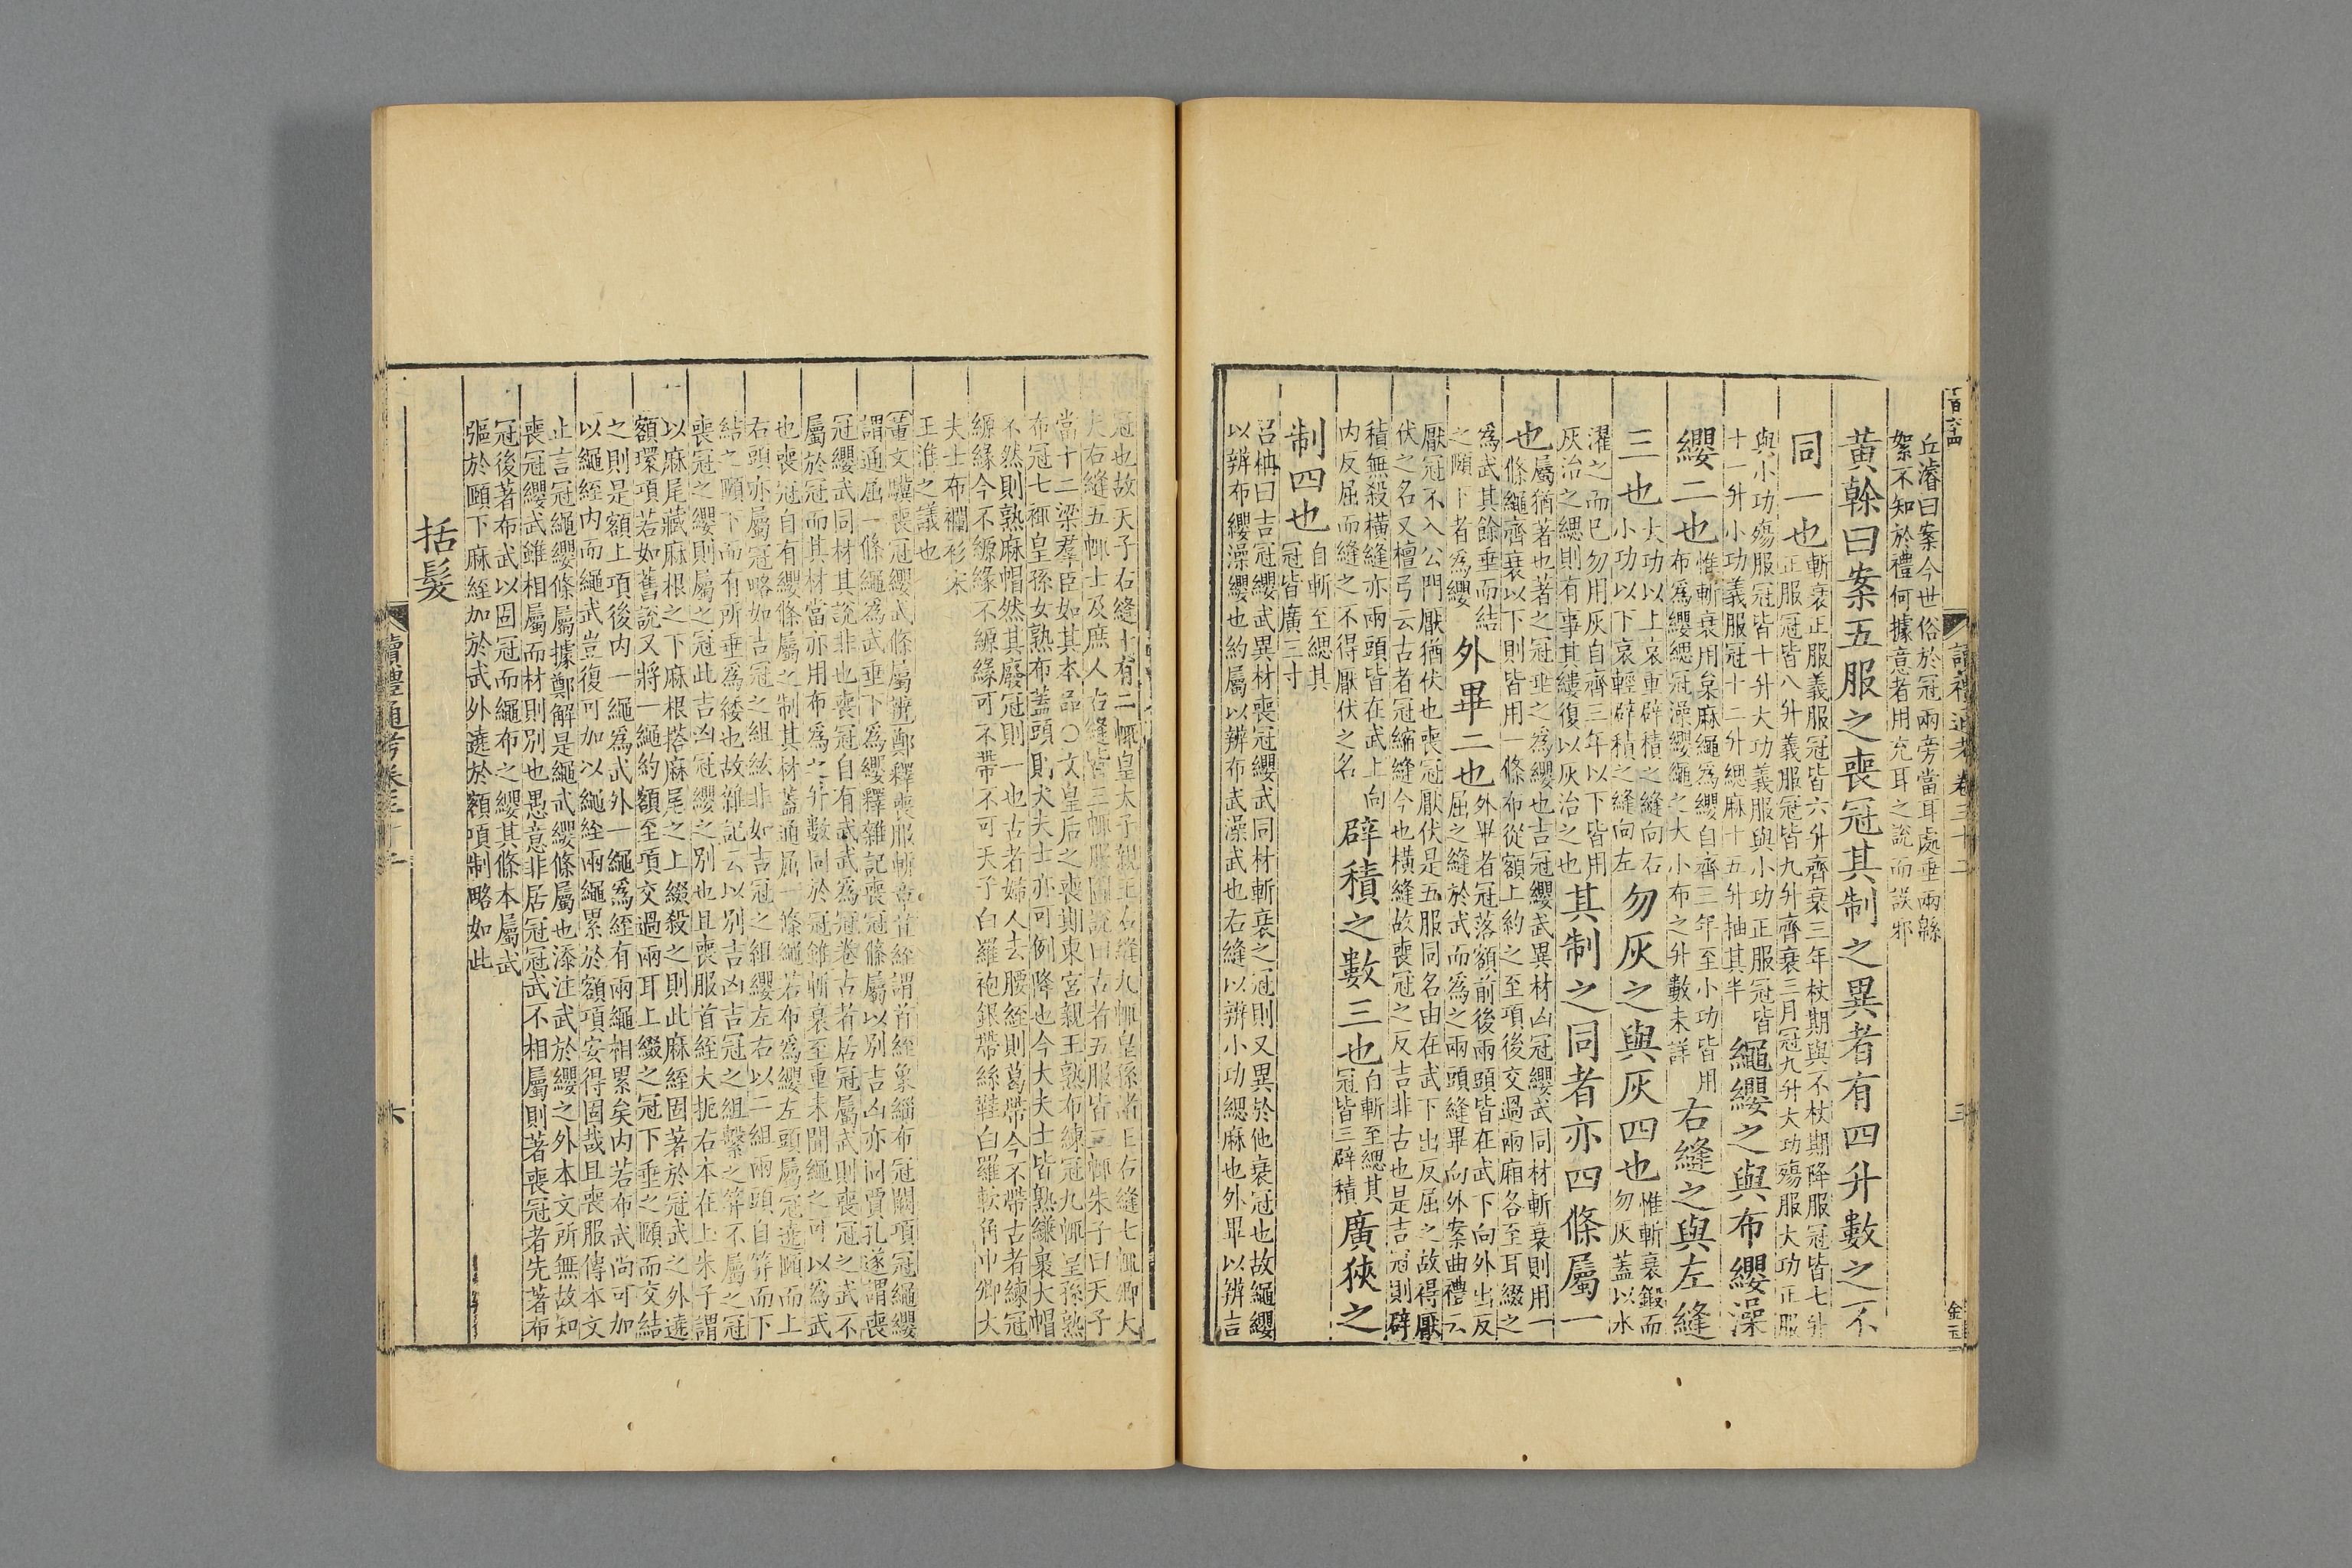 百六十四
讀禮通考卷三十二
三
金玉
丘濬曰案今世俗於冠兩旁當耳處垂兩緜
絮不知於禮何據意者用充耳之說而誤邪
黃榦曰案五服之喪冠其制之異者有四升數之不
同一也
斬衰正服義服冠皆六升齊衰三年杖期與不杖期降服冠皆七升
正服冠皆八升義服冠皆九升齊衰三月冠九升大功殤服大功正服
與小功殤服冠皆十升大功義服與小功正服冠皆
十一升小功義服冠十二升緦麻十五升抽其半
繩纓之與布纓澡
纓二也
惟斬衰用枲麻繩爲纓自齊三年至小功皆用
布爲纓緦冠澡纓繩之大小布之升數未詳
右縫之與左縫
三也
大功以上哀重辟積之縫向右
小功以下哀輕辟積之縫向左
勿灰之與灰四也
惟斬衰鍛而
勿灰蓋以水
濯之而已勿用灰自齊三年以下皆用
灰治之緦則有事其縷復以灰治之也
其制之同者亦四條屬一
也
屬猶著也著之冠垂之爲纓也吉冠纓武異材凶冠纓武同材斬衰則用一
條繩齊衰以下則皆用一條布從額上約之至項後交過兩廂各至耳綴之
爲武其餘垂而結
之頤下者爲纓
外畢二也
外畢者冠落額前後兩頭皆在武下向外出反
屈之縫於武而爲之兩頭縫畢向外案曲禮云
厭冠不入公門厭猶伏也喪冠厭伏是五服同名由在武下出反屈之故得厭
伏之名又檀弓云古者冠縮縫今也橫縫故喪冠之反吉非古也是吉冠則辟
積無殺橫縫亦兩頭皆在武上向
內反屈而縫之不得厭伏之名
辟積之數三也
自斬至緦其
冠皆三辟積
廣狹之
制四也
自斬至緦其
冠皆廣三寸
呂柟曰吉冠纓武異材喪冠纓武同材斬衰之冠則又異於他衰冠也故繩纓
以辨布纓澡纓也約屬以辨布武澡武也右縫以辨小功緦麻也外畢以辨吉
冠也故天子右縫十有二㡇皇太子親王右縫九㡇皇孫諸王右縫七㡇卿大
夫右縫五㡇士及庶人右縫皆三㡇服圖說曰古者五服皆三㡇朱子曰天子
當十二梁羣臣如其本品○文皇后之喪期東宮親王熟布練冠九㡇皇孫熟
布冠七㡇皇孫女熟布蓋頭則大夫士亦可例降也今大夫士皆熟縑裹大帽
不然則熟麻帽然其廢冠則一也古者婦人去腰絰則葛帶今不帶古者練冠
縓緣今不縓緣不縓緣可不帶不可天子白羅袍銀帶絲鞋白羅軟角巾卿大
夫士布襴衫宋
王淮之議也
黃文驥喪冠纓武條屬辨鄭釋喪服斬章苴絰謂首絰象緇布冠闕項冠繩纓
謂通屈一條繩爲武垂下爲纓釋雜記喪冠條屬以別吉凶亦同賈孔遂謂喪
冠纓武同材其說非也喪冠自有武武爲冠卷古者居冠屬武則喪冠之武不
屬於冠而其材當亦用布爲之升數同於冠雖斬衰至重未聞繩之可以爲武
也喪冠自有纓條屬之制其材蓋通屈一條繩若布爲纓左頭屬冠遶頤而上
右頭亦屬冠略如古冠之組紘非如吉冠之組纓左右以二組兩頭自笄而下
結之頤下而有所垂爲緌也故雜記云以別吉凶吉冠之組繫之笄不屬之冠
喪冠之纓則屬之冠此吉凶冠纓之別也且喪服首絰大扼右本在上朱子謂
以麻尾藏麻根之下麻根搭麻尾之上綴殺之則此麻絰固著於冠武之外遶
額環項若如舊說又將一繩約額至項交過兩耳上綴之冠下垂之頤而交結
之則是額上項後內一繩爲武外一繩爲絰有兩繩相累矣內若布武尚可加
以繩絰內而繩武豈復可加以繩絰兩繩累於額項安得固哉且喪服傳本文
止言冠繩纓條屬據鄭解是繩武纓條屬也添注武於纓之外本文所無故知
喪冠纓武雖相屬而材則別也愚意非居冠冠武不相屬則著喪冠者先著布
冠後著布武以固冠而繩布之纓其條本屬武
彄於頤下麻絰加於武外遶於額項制略如此
括髮
讀禮通考卷三十二
六